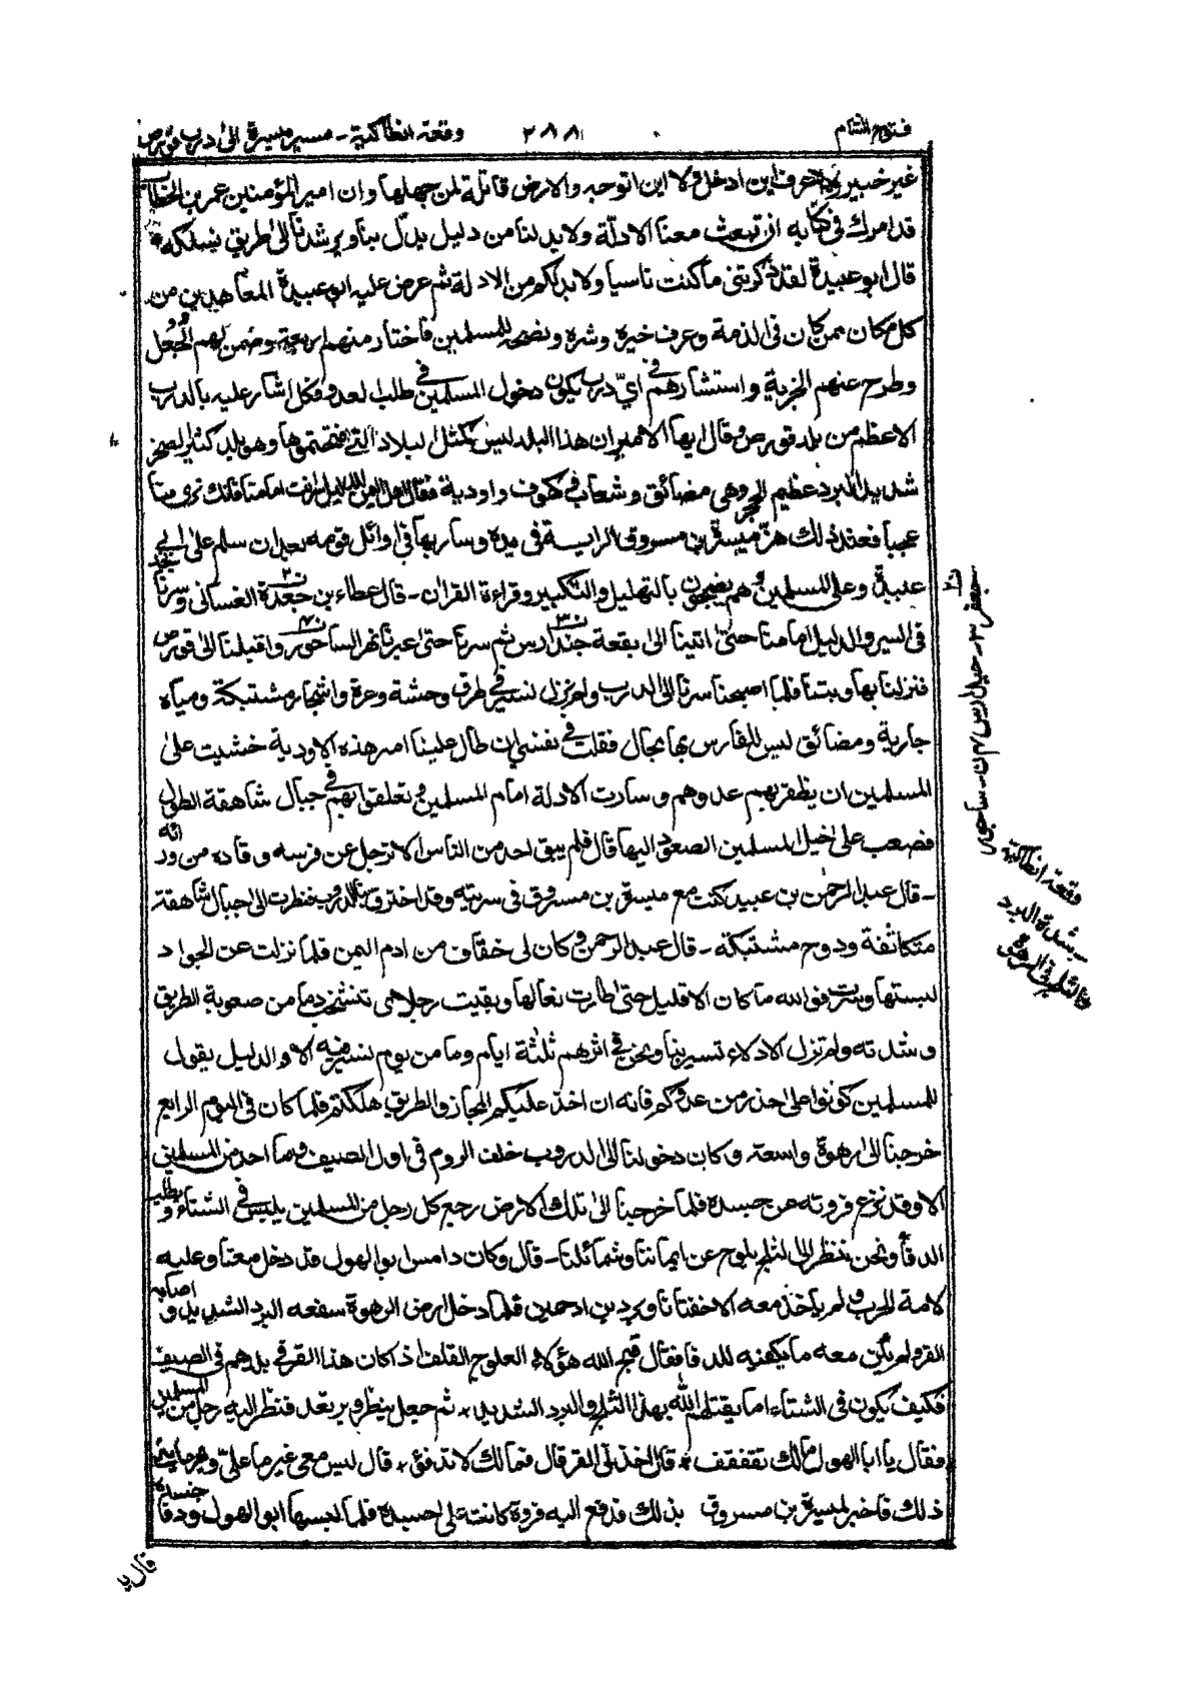 فتوح الشام
٢٨٨
وقعة انطاكية - مسير ميسرة الى درب قورص
غير خبير ولا اعرف اين ادخل ولا اين اتوجه والارض قاتلة لمن جهلها وان امير المؤمنين عمر بن الخطاب
قد امرك فى كتابه ان تبعث معنا الادلّة ولا بد لنا من دليل يدلّ بنا ويرشدنا الى طريق نسلكه *
قال ابو عبيدة لقد ذكرتنى ما كنت ناسيا ولا بد لكم من الادلة ثم عرض عليه ابو عبيدة المعاهدين من
كل مكان ممن كان فى الذمة وعرف خيره وشره ونصحه للمسلمين فاختار منهم اربعة وضمن لهم الجُعُل
وطرح عنهم الجزية واستشارهم فى اىّ درب يكون دخول المسلمين فى طلب العدو فكل اشار عليه بالدرب
الاعظم من بلد قورص وقال ايها الامير ان هذا البلد ليس كمثل البلاد التى فتحتموها وهو بلد كثير الصخر
شديد البرد عظيم الحجر وهى مضائق وشعاب وكهوف واودية فقال الدليل انت امامنا فانك ترى منا
عجبا فعند ذلك هزّ ميسرة بن مسروق الراية فى يده وسار بها فى اوائل قومه بعد ان سلم على ابى
عبيدة وعلى المسلمين وهم يضجون بالتهليل والتكبير وقراءة القران - قال عطاء بن جعدة الغسانى وسرنا نجد
فى السير والدليل امامنا حتى اتينا الى بقعة جندارس ثم سرنا حتى عبرنا نهر الساحور واقبلنا الى قورص
فنزلنا بها وبتنا فلما اصبحنا سرنا الى الدرب ولم نزل نسير فى طرق وحشة وعرة واشجار مشتبكة ومياه
جارية ومضائق ليس للفارس بها مجال فقلت فى نفسى ان طال علينا امر هذه الاودية خشيت على
المسلمين ان يظفر بهم عدوهم وسارت الادلة امام المسلمين وتعلقوا بهم فى جبال شاهقة الطول
فصعب على خيل المسلمين الصعود اليها قال فلم يبق احد من الناس الا ترجل عن فرسه وقاده من ورائه
- قال عبد الرحمن بن عبيد كنت مع ميسرة بن مسروق فى سريته وقد اخترق بنا الدروب فنظرت الى جبال شاهقة
متكاثفة ودوح مشتبكة - قال عبد الرحمن وكان لى خفّاف من ادم اليمن فلما نزلت عن الجواد
لبستها وسرت فوالله ما كان الا قليل حتى طارت نعالها وبقيت رجلاى تنشخب دما من صعوبة الطريق
وشدته ولم تزل الادلاء تسير بنا ونحن فى اثرهم ثلثة ايام وما من يوم نسير فيه الا والدليل يقول
للمسلمين كونوا على حذر من عدوكم فانه ان اخذ عليكم المجاز والطريق هلكتم فلما كان فى اليوم الرابع
خرجنا الى رهوة واسعة وكان دخولنا الى الدروب خلف الروم فى اول الصيف وما احد من المسلمين
الا وقد نزع فروته عن جسده فلما خرجنا الى تلك الارض رجع كل رجل من المسلمين يلبس فى الشتاء ويطلب
الدفأ ونحن ننظر الى الثلج يلوح عن ايماننا وشمائلنا - قال وكان دامس ابو الهول قد دخل معنا وعليه
لامة الحرب ولم ياخذ معه الا خفتانا وبردين ادحمين فلما دخل ارض الرهوة سفعه البرد الشديد واصابه
القر ولم يكن معه ما يكفيه للدفأ فقال قبح الله هؤلاء العلوج القلف اذ كان هذا القر فى بلدهم فى الصيف
فكيف يكون فى الشتاء اما يقتلهم الله بهذا الثلج والبرد الشديد * ثم جعل ينظر ويرتعد فنظر اليه رجل من المسلمين
فقال يا ابا الهول مالك تقفقف * قال اخذنى القر قال فمالك لا تدفئ * قال ليس معى غير ما علىّ
ذلك فاخبر ميسرة بن مسروق بذلك فدفع اليه فروة كانت على جسده فلما لبسها ابو الهول ودفا جسده
قال يا
جعفر ٣ - جيادارس ٤ ن - ساجور
وقعة انطاكية
شدة البرد
والثلج فى الرهوة